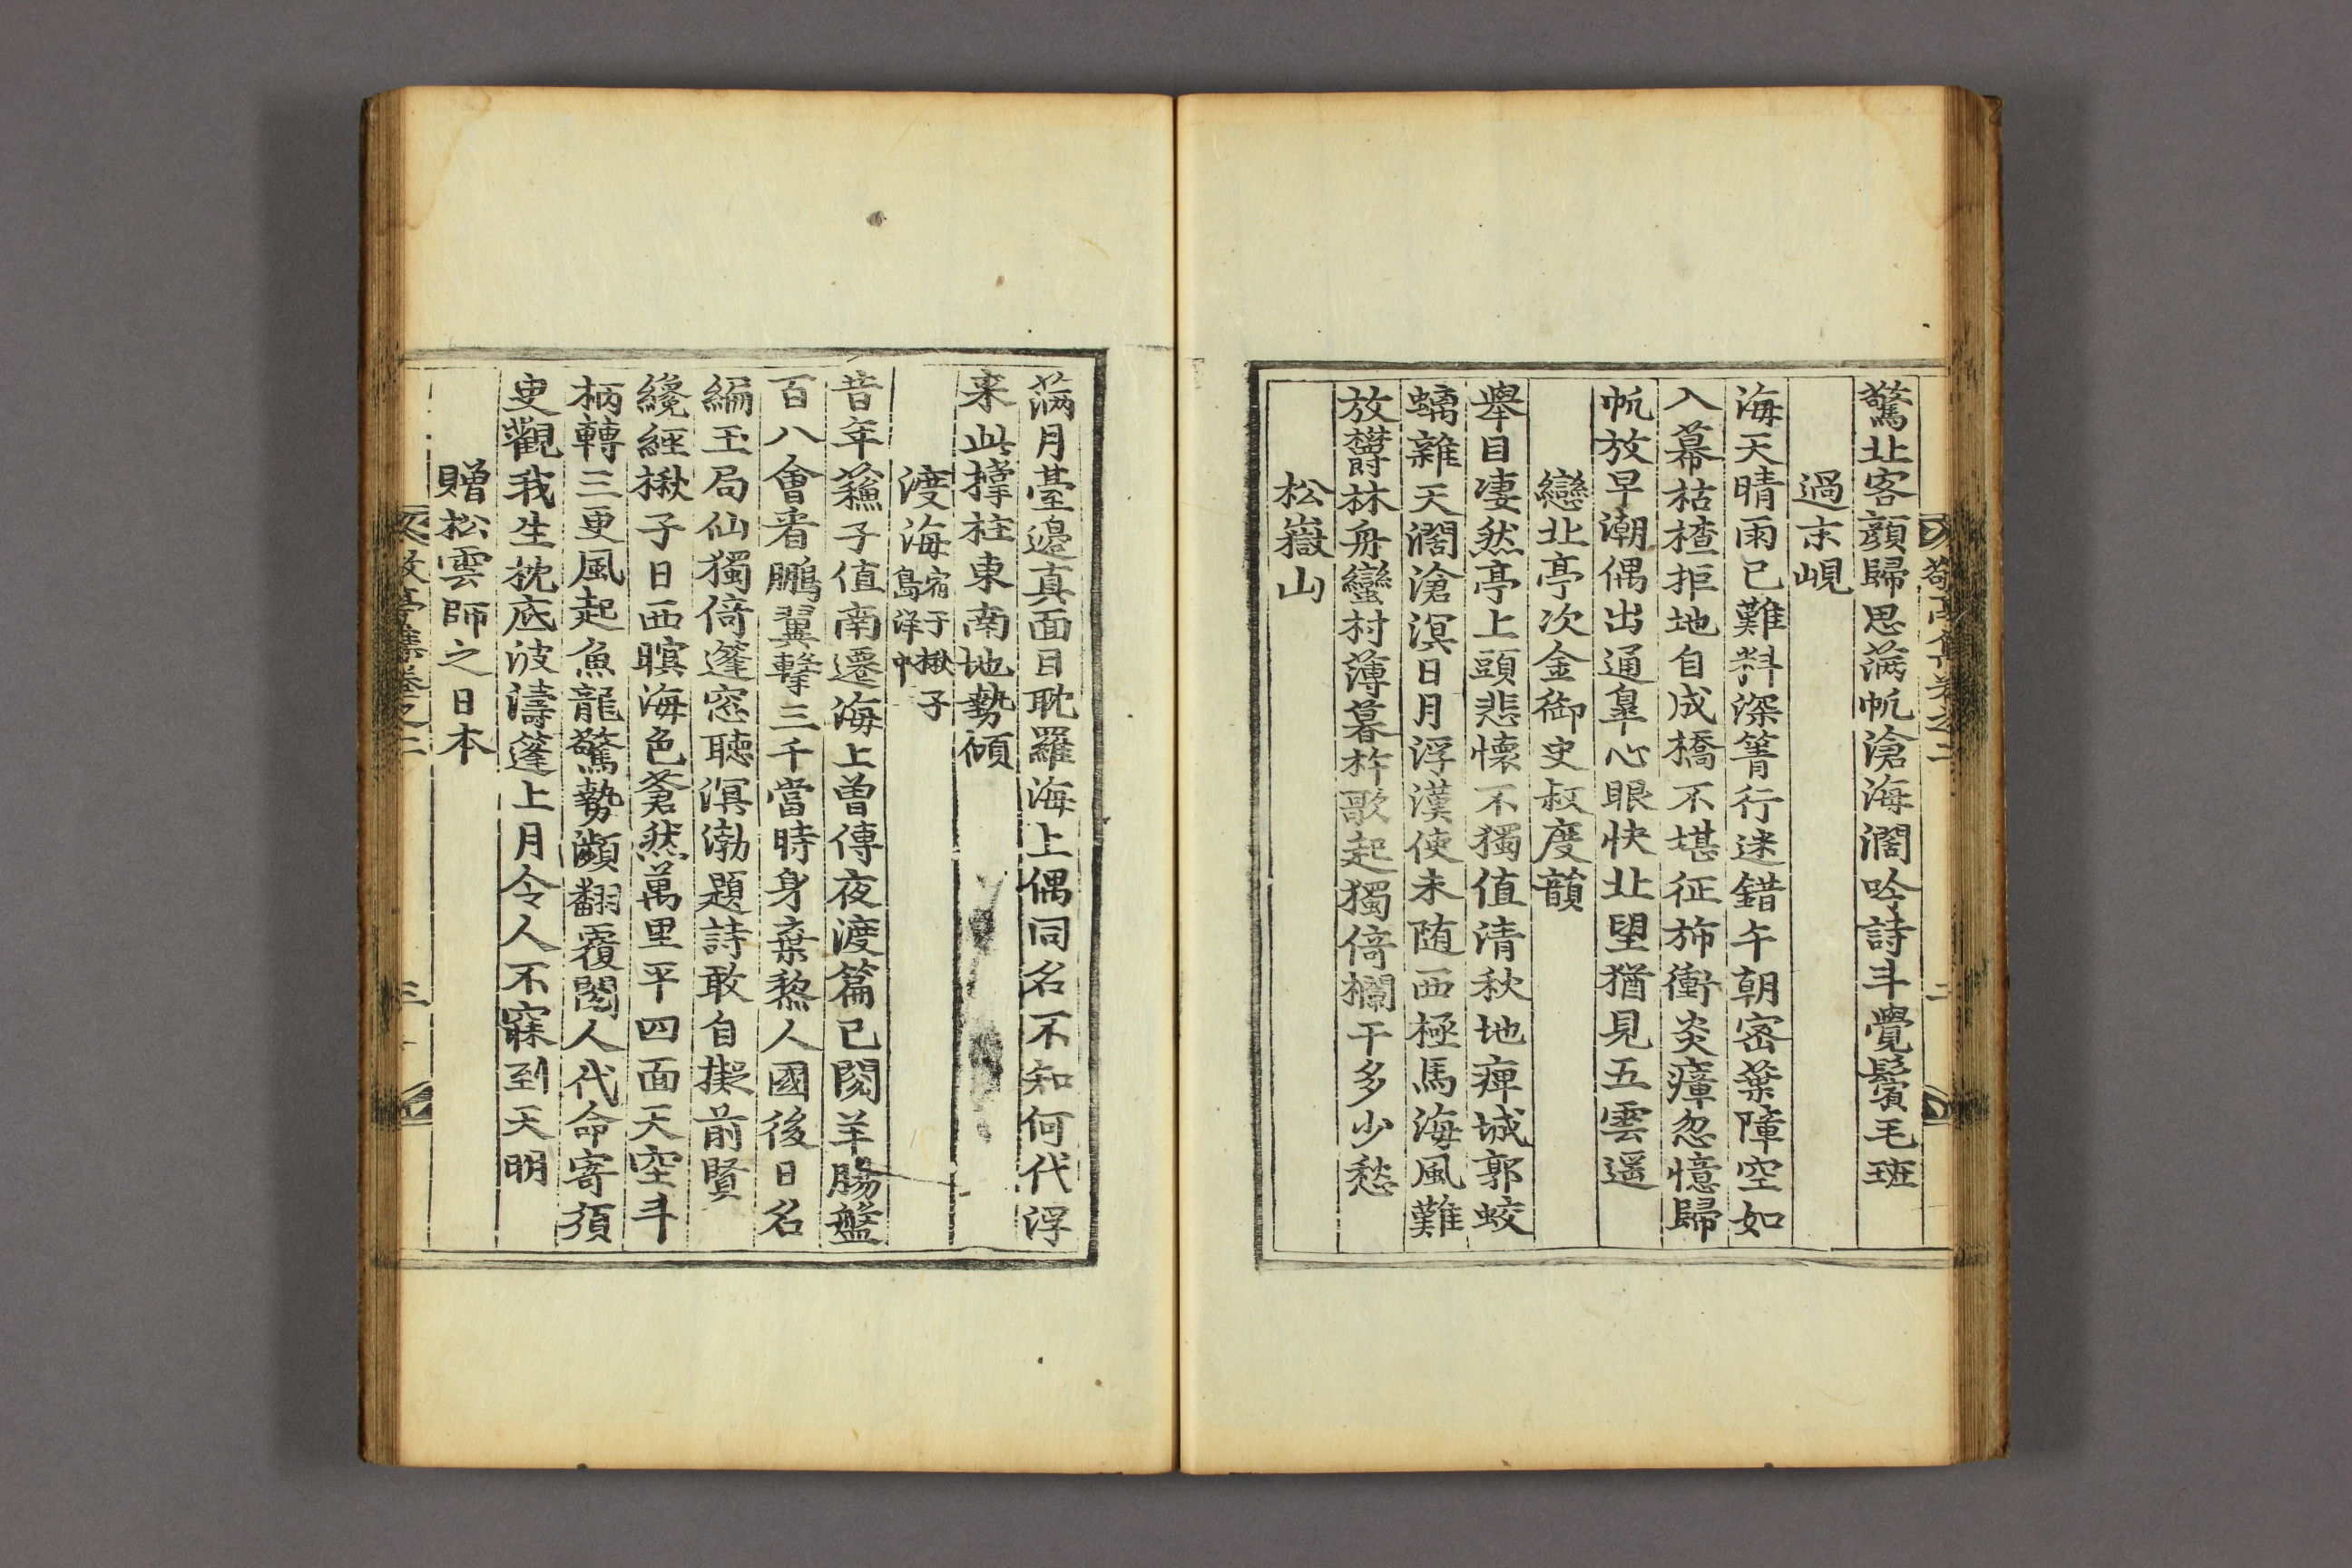 敬亭集卷之二
二
驚北客顔歸思滿帆滄海濶吟詩斗覺鬢毛班
過末峴
海天晴雨已難料深箐行迷錯午朝密葉障空如
入幕枯楂拒地自成橋不堪征斾衝炎瘴忽憶歸
帆放早潮偶出通皐心眼快北望猶見五雲遥
戀北亭次金御史叔度韻
擧目凄然亭上頭悲懷不獨値清秋地痺城郭蛟
螭雜天濶滄溟日月浮漢使未随西極馬海風難
放欝林舟蠻村薄暮杵歌起獨倚欄干多少愁
松嶽山
滿月臺邉真面目耽羅海上偶同名不知何代浮
来此撑柱東南地勢傾
渡海宿于楸子島洋中
昔年蘓子値南遷海上曽傳夜渡篇已閱羊膓盤
百八會看鵬翼擊三千當時身棄黎人國後日名
編玉局仙獨倚篷窓聴溟渤題詩敢自擬前賢
纔經楸子日西暝海色蒼然萬里平四面天空斗
柄轉三更風起魚龍驚勢瀕翻覆閱人代命寄須
㪅觀我生枕底波濤篷上月令人不寐到天明
贈松雲師之日本
敬亭集卷之二
三